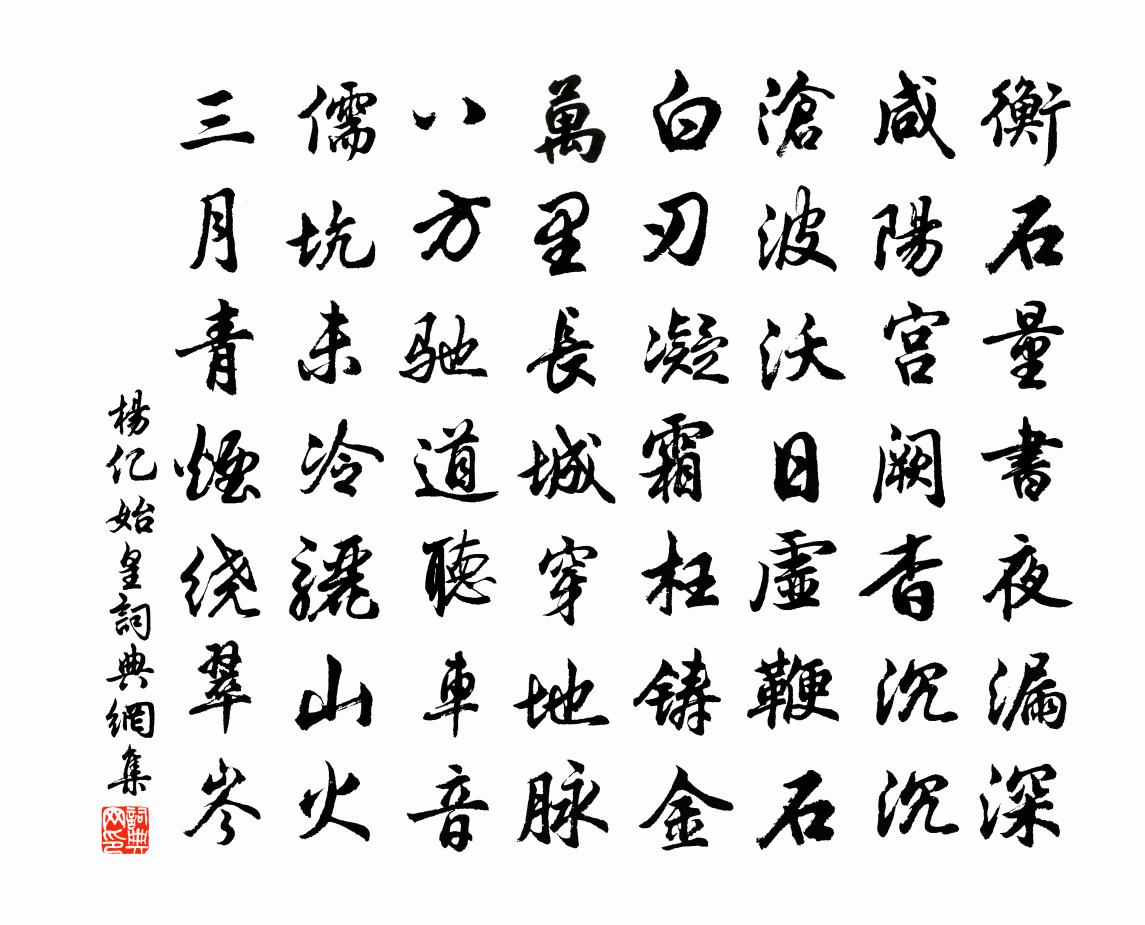 衡石量書夜漏深
咸陽宮闕杳沉沉
滄波沃日虛鞭石
白刃凝霜枉鋳金
萬里長城穿地脉
八方馳道聽車音
儒坑未冷驪山火
三月青煙繞翠岑
楊億始皇詞典網集
詞典网印